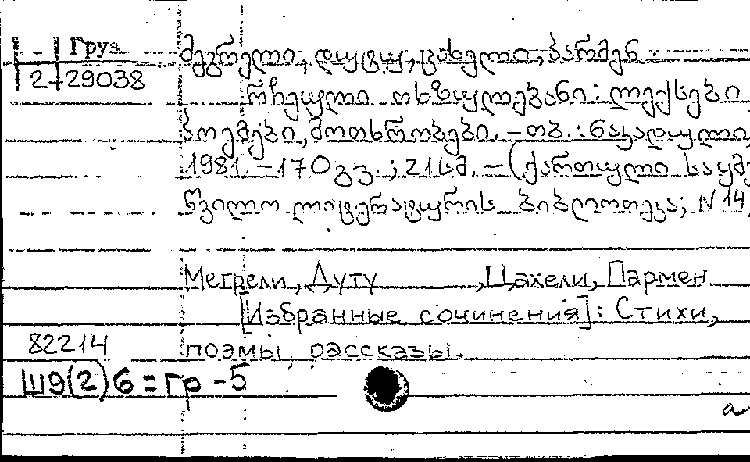 Груз.
2-29038
მეგრელი, დუტუ, ცახელი, პარმენ
რჩეული თხზულებანი: ლექსები
პოემები, მოთხრობები. – თბ.: ნაკადული,
1981. – 170 გვ.; 21 სმ. – (ქართული საყმ
წვილო ლიტერატურის ბიბლიოთეკა; N 14
Мегрели, Дуту , Цахели, Пармен
[Избранные сочинения]: Стихи,
82214 поэмы, рассказы.
Ш9(2)6=Гр-5
а